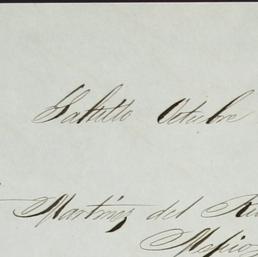 Saltillo Octubre
Martinez del Rio
Mexico